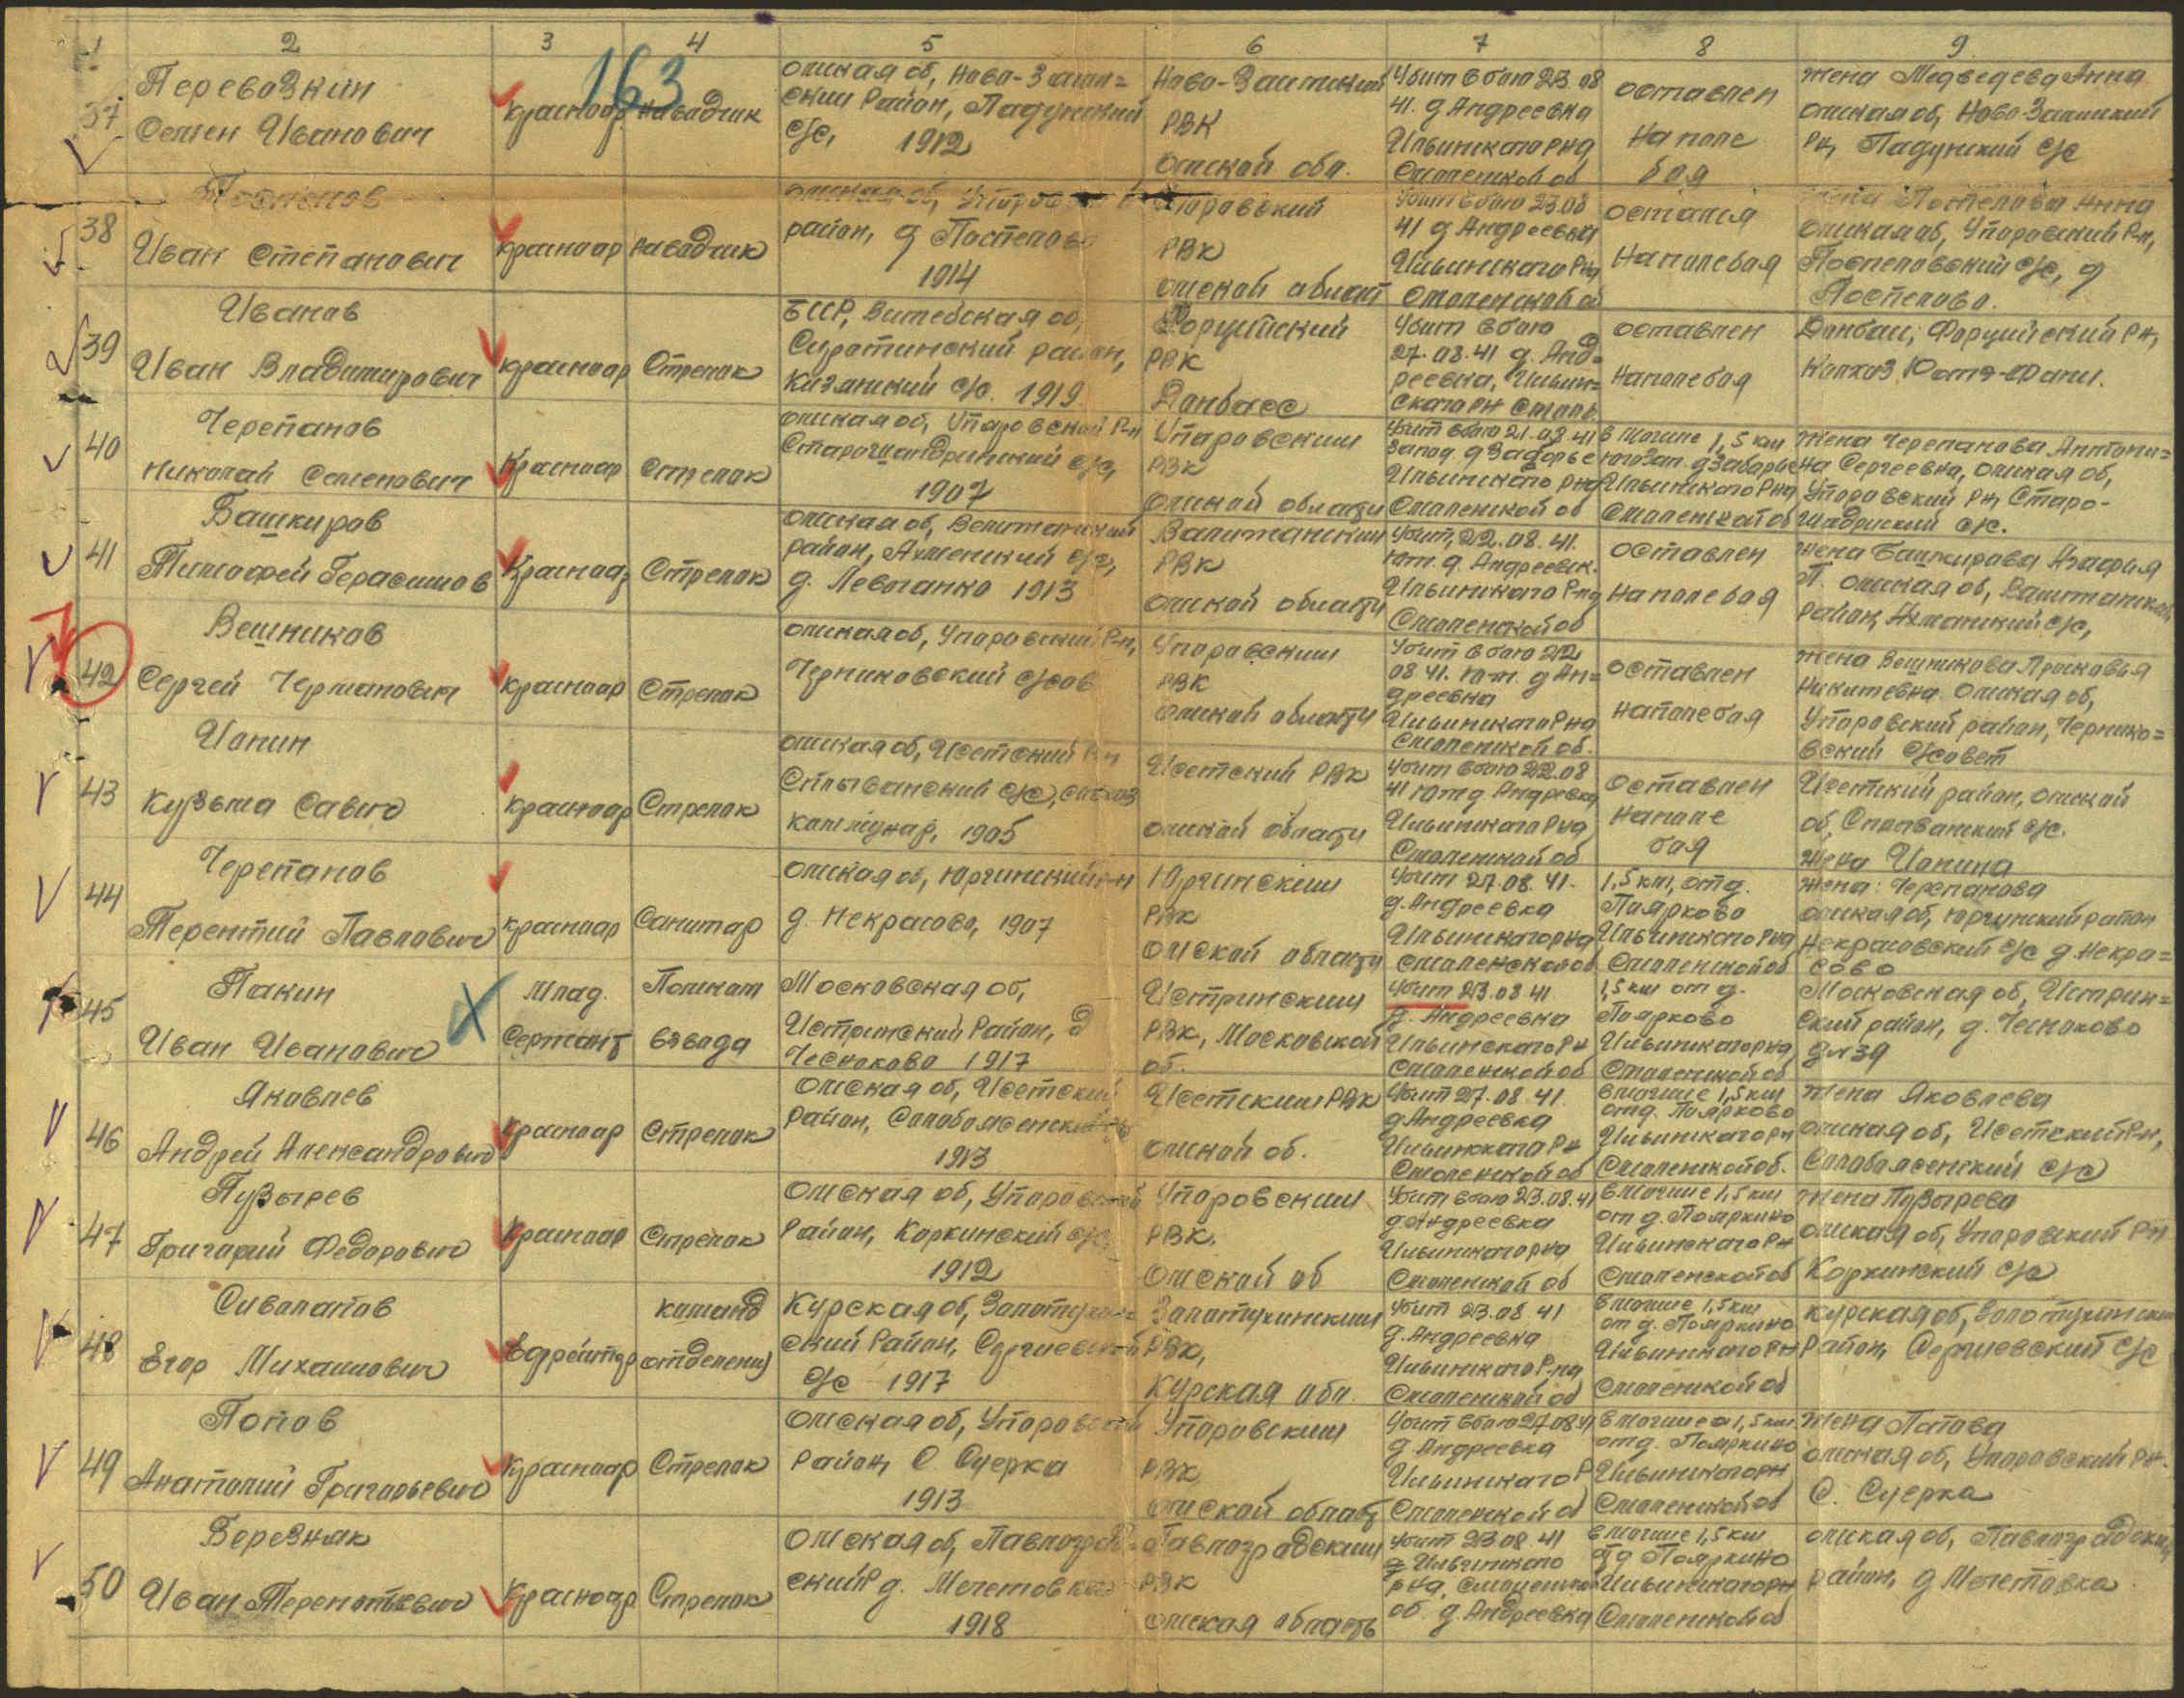 1 2 3 4 5 6 7 8 9
163
37
Перевозкин
Семен Иванович
красноар
наводчик
омская об, Ново-Заим=
ский Район, Падунский
с/с, 1912
Ново-Заимский
РВК
омской обл.
Убит в бою 23.08
41. д Андреевка
Ильинского Р-на
Смоленской об
оставлен
на поле
боя
жена Медведева Анна
омская об, Ново-Заимский
Рн, Падунский с/с
38
Поспелов
Иван Степанович
красноар
наводчик
омская об,
район, д Поспелово
1914
Упоровский
РВК
омской област
Убит в бою 23.08
41 д Андреевка
Ильинского Рна
Смоленской об
остался
на поле боя
жена Поспелова Анна
омская об, Упоровский Р-н,
Поспеловский с/с, д
Поспелово.
39
Иванов
Иван Владимирович
красноар
Стрелок
БССР, Витебская об,
Суротинский район,
с/с. 1919
РВК
Донбасс
Убит в бою
27.08.41 д. Анд=
реевка, Ильин=
ского РН Смол.
оставлен
на поле боя
Донбас,
Колхоз
40
Черепанов
Николай Семенович
Красноар
Стрелок
омская об, Упоровский Р-н
Старошадринский с/с,
1907
Упоровский
РВК
омской области
Убит в бою 21.08.41
запад. д Задорье
Ильинского рна
Смоленской об
в могиле 1,5 км
юго зап. д
Ильинского Рна
Смоленской об
жена Черепанова Антони=
на Сергеевна, омская об,
Упоровский РН, Старо-
шадринский с/с.
41
Башкиров
Тимофей Герасимов
Красноар
Стрелок
омская об,
район, с/с,
д. 1913
РВК
омской области
Убит, 22.08.41.
юж. д. Андреевк.
Ильинского Р-на
Смоленской об
оставлен
на поле боя
жена Башкирова Агафия
П. омская об,
район, с/с,
42
Вешников
Сергей Германович
красноар
Стрелок
омская об, Упоровский Р-н,
Черниковский с/сов
Упоровский
РВК
омской области
Убит в бою 22
08 41. юж. д Ан=
дреевка
Ильинского Рна
Смоленской об.
оставлен
на поле боя
жена Вешникова Прасковья
Никитевна омская об,
Упоровский район, Чернико=
вский с/совет
43
Ионин
Кузьма Савич
красноар
Стрелок
омская об, Исетский Р-н
с/с,
1905
Исетский РВК
омской области
Убит в бою 22.08
41 юж д. Андреевка
Ильинского Рна
Смоленской об
оставлен
на поле
боя
Исетский район, омской
об, с/с.
жена Ионина
44
Черепанов
Терентий Павлович
красноар
Санитар
омская об, Юргинский р-н
д. Некрасово, 1907
Юргинский
РВК
омской области
Убит 27.08.41.
д. Андреевка
Ильинского рна
Смоленской об
1,5 км, от д.
Поярково
Ильинского Рна
Смоленской об
жена: Черепанова
омская об, Юргинский район
Некрасовский с/с д. Некра=
сово
45
Пакин
Иван Иванович
Млад.
Сержант
Помком
взвода
Московская об,
Истринский Район, д
Чесноково 1917
Истринский
РВК, Московской
об.
Убит 23.08 41
д. Андреевка
Ильинского Р-н
Смоленской об
1,5 км от д.
Поярково
Ильинского рна,
Смоленской об
Московская об, Истрин=
ский район, д. Чесноково
д N 39
46
Яковлев
Андрей Александрович
красноар
Стрелок
омская об, Исетский
район,
1913
Исетский РВК
омской об.
Убит 27.08.41.
д Андреевка
Ильинского Рн
Смоленской об
в могиле 1,5 км
от д. Поярково
Ильинского рн
Смоленской об.
жена Яковлева
омская об, Исетский Р-н,
с/с
47
Пузырев
Григорий Федорович
красноар
Стрелок
омская об, Упоровский
Район, Коркинский с/с,
1912
Упоровский
РВК.
омской об
Убит в бою 23.08.41
д Андреевка
Ильинского рна
Смоленской об
в могиле 1,5 км
от д. Пояркино
Ильинского Рн
Смоленской об
жена Пузырева
омская об, Упоровский Рн
Коркинский с/с
48
Сиволапов
Егор Михайлович
Ефрейтор
команд
отделения
Курская об, Золотухин=
ский Район, Сергиевский
с/с 1917
Золотухинский
РВК,
Курская обл.
Убит 23.08.41
д. Андреевка
Ильинского Р-на
Смоленской об
в могиле 1,5 км
от д. Пояркино
Ильинского Рн
Смоленской об
Курская об, Золотухинский
Район, Сергиевский с/с
49
Попов
Анатолий Григорьевич
Красноар
Стрелок
омская об, Упоровский
Район, С Суерка
1913
Упоровский
РВК
омской област
Убит в бою 27.08.41
д. Андреевка
Ильинского Р
Смоленской об
в могиле 1,5 км
от д. Пояркино
Ильинского рн
Смоленской об
жена Попова
омская об, Упоровский Рн.
С. Суерка
50
Березняк
Иван Терентьевич
Красноар
Стрелок
омская об, Павлоград=
ский Р д. Мечетовка
1918
Павлоградский
РВК
омская область
Убит 23.08 41
д Ильинского
рна, Смоленской
об. д. Андреевка
в могиле 1,5 км
от д Пояркино
Ильинского рн
Смоленской об
омская об, Павлоградский
район, д Мечетовка